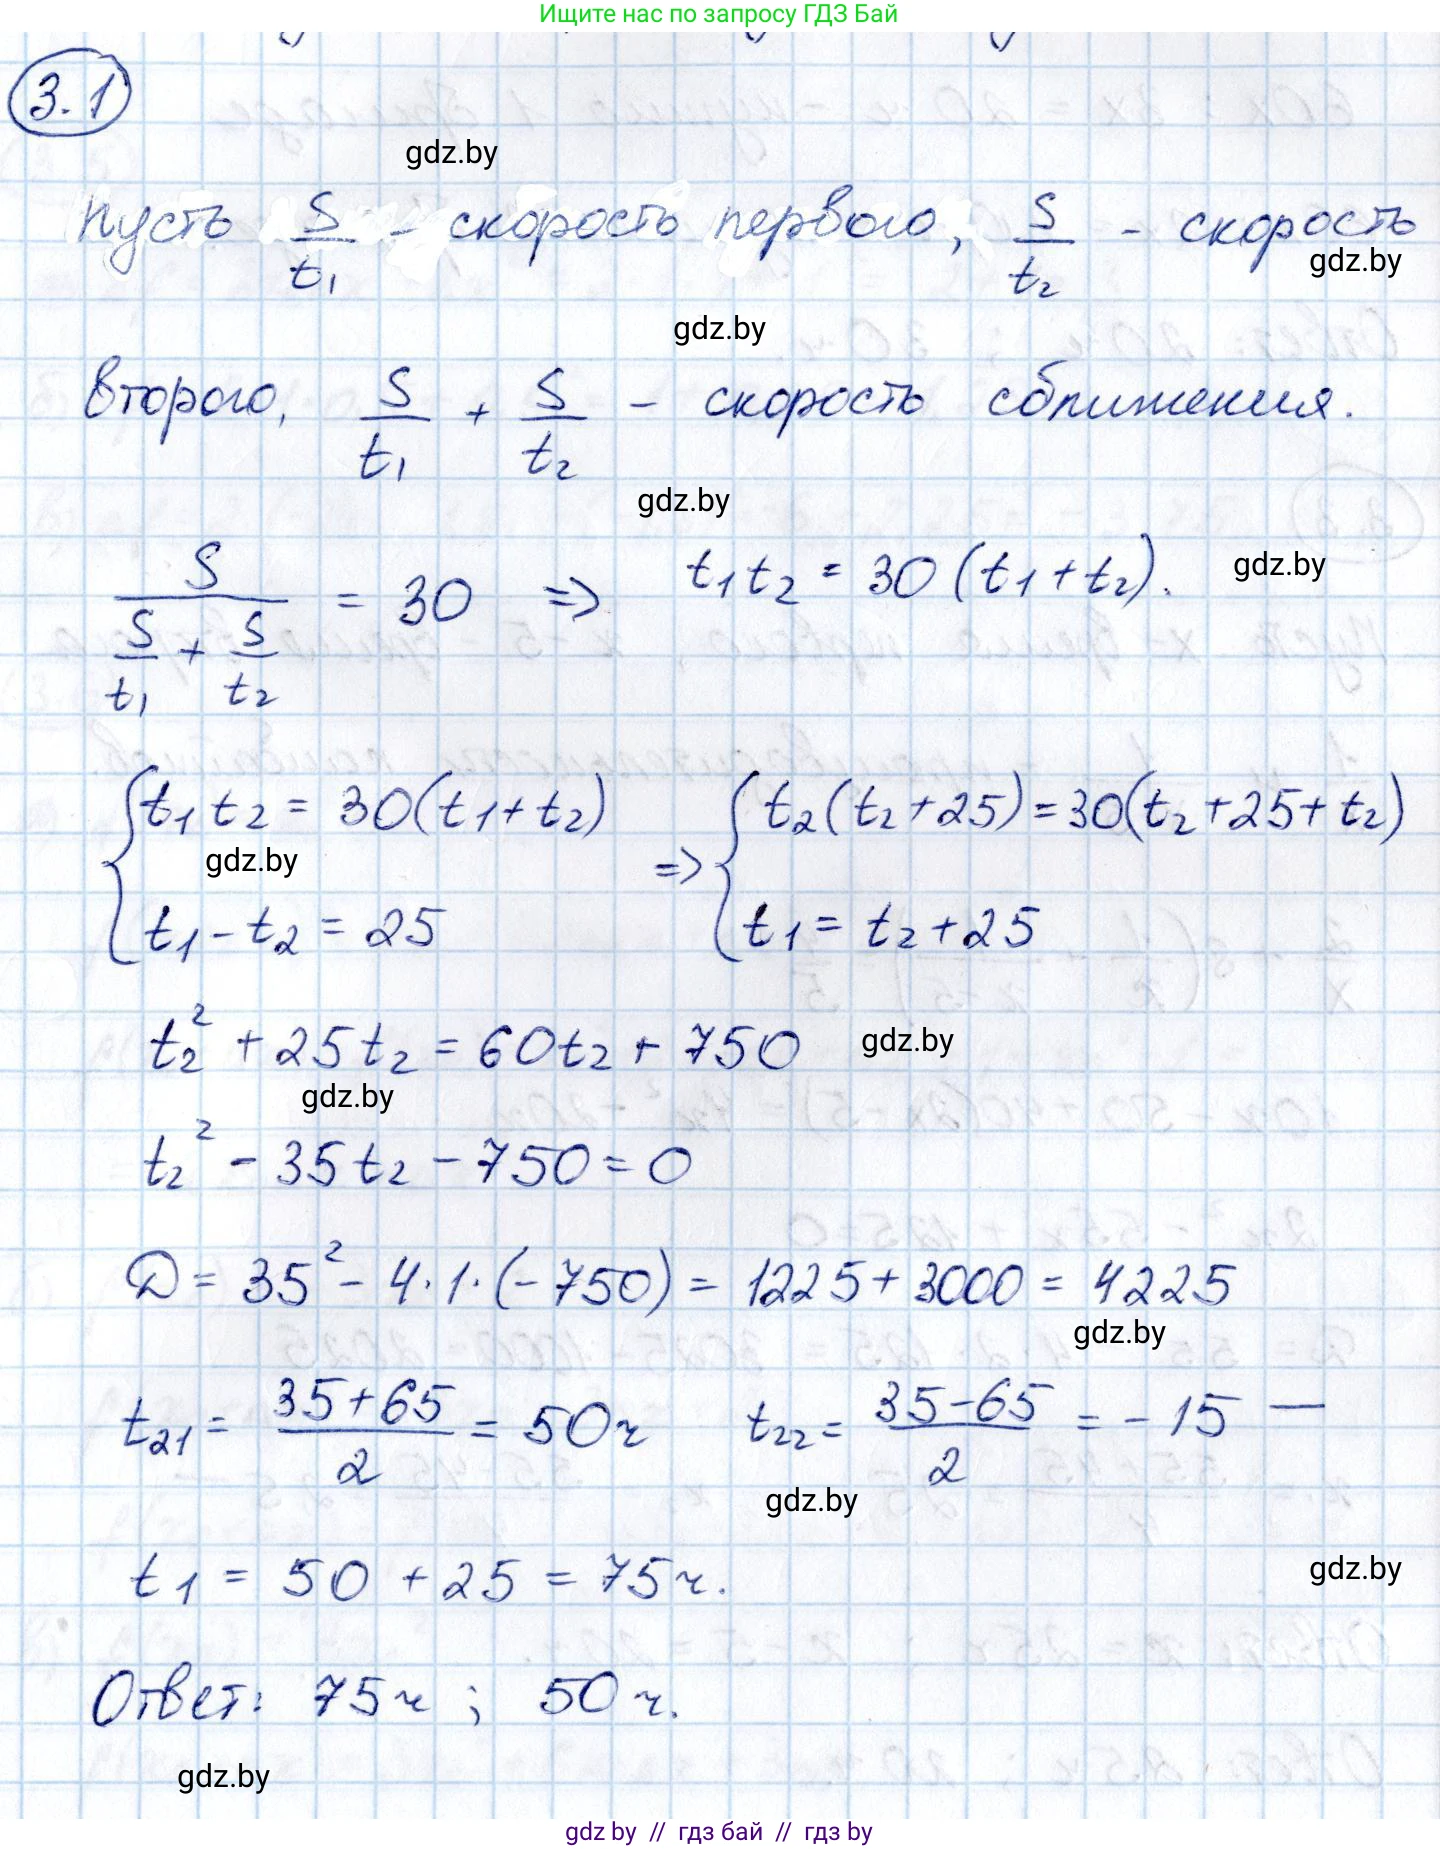 Ищите нас по запросу ГДЗ Бай
3.1
gdz.by
Пусть S/t₁ - скорость первого, S/t₂ - скорость
gdz.by
gdz.by
второго, S/t₁ + S/t₂ - скорость сближения.
gdz.by
S/(S/t₁ + S/t₂) = 30 => t₁t₂ = 30(t₁+t₂).
gdz.by
{ t₁t₂ = 30(t₁+t₂) => { t₂(t₂+25) = 30(t₂+25+t₂)
gdz.by
t₁ - t₂ = 25 t₁ = t₂+25
t₂² + 25t₂ = 60t₂ + 750
gdz.by
gdz.by
t₂² - 35t₂ - 750 = 0
D = 35² - 4·1·(-750) = 1225 + 3000 = 4225
gdz.by
t₂₁ = (35+65)/2 = 50ч t₂₂ = (35-65)/2 = -15 —
gdz.by
t₁ = 50 + 25 = 75ч.
gdz.by
Ответ: 75ч ; 50ч.
gdz.by
gdz by // гдз бай // гдз by